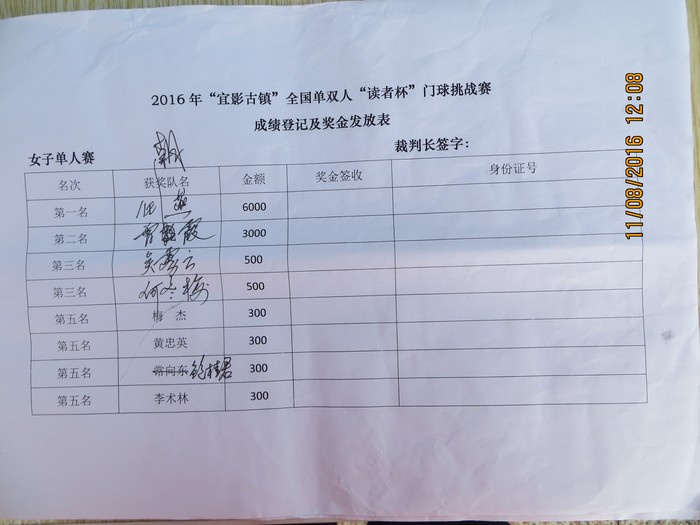 2016年“宜影古镇”全国单双人“读者杯”门球挑战赛
成绩登记及奖金发放表
女子单人赛 裁判长签字：
名次 获奖队名 金额 奖金签收 身份证号
第一名 任燕 6000
第二名 3000
第三名 500
第三名 何冬梅 500
第五名 梅 杰 300
第五名 黄忠英 300
第五名 常向东 300
第五名 李术林 300
11/08/2016 12:08